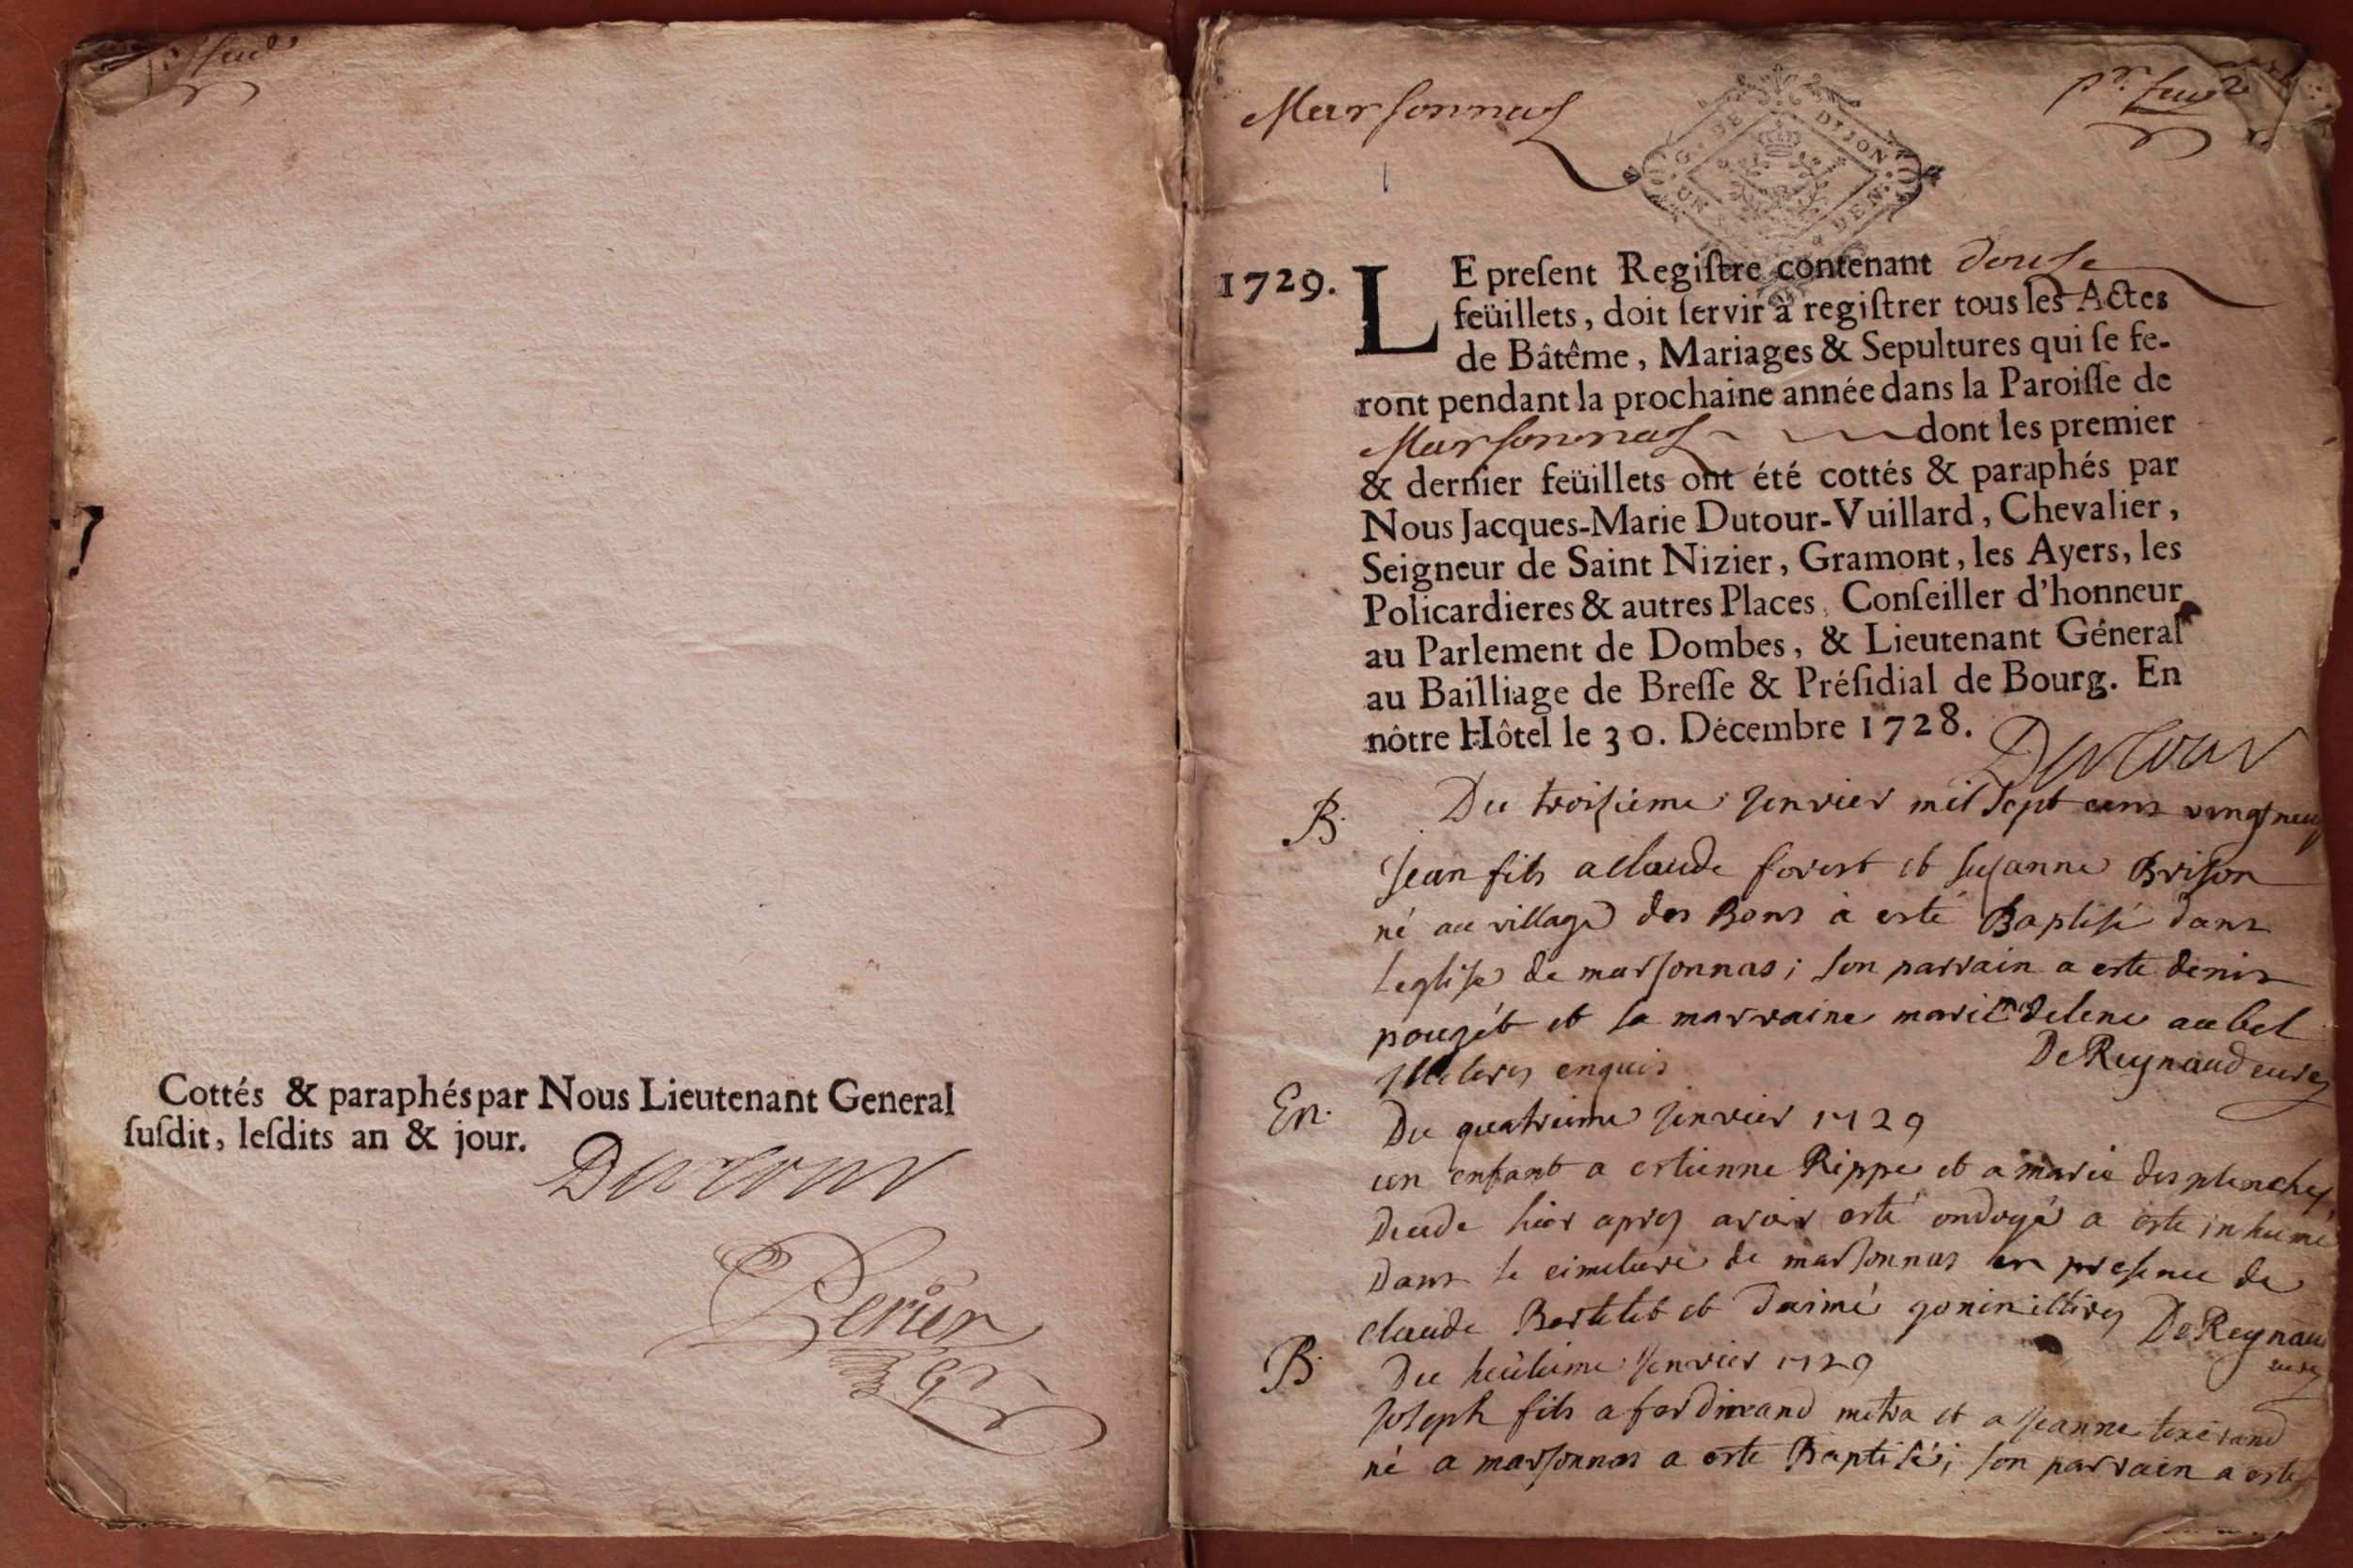 Cottés & paraphés par Nous Lieutenant General
ſuſdit, leſdits an & jour.
Dutour
Perier
Marsonnas
G. DE DIJON
UN DEN.
1729. LE preſent Regiſtre contenant douse
feüillets, doit ſervir à regiſtrer tous les Actes
de Bâtême, Mariages & Sepultures qui ſe fe-
ront pendant la prochaine année dans la Paroiſſe de
Marsonnas dont les premier
& dernier feüillets ont été cottés & paraphés par
Nous Jacques-Marie Dutour-Vuillard, Chevalier,
Seigneur de Saint Nizier, Gramont, les Ayers, les
Policardieres & autres Places, Conſeiller d'honneur
au Parlement de Dombes, & Lieutenant Géneral
au Bailliage de Breſſe & Préſidial de Bourg. En
nôtre Hôtel le 30. Décembre 1728.
Dutour
B. Du troisieme Jenvier mil sept cens vingt neuf
Jean fils a claude forest et susanne Brison
né au village des Bons à esté Baptisé dans
leglise de marsonnas; son parrain a este denis
pouzét et sa marraine marie madelene aubel
illiterés enquis DeReynaud curé
En. Du quatrieme Jenvier 1729
un enfant a estienne Rippe et a marie desplanches
decede hier apres avoir esté ondoyé a este inhumé
dans le cimetiere de marsonnas en presence de
claude Bertelet et daimé gonin illirés DeReynaud
curé
B. Du heutieme Jenvier 1729
Joseph fils a ferdinand metra et a Jeanne texerand
né a marsonnas a este Baptisé; son parrain a este